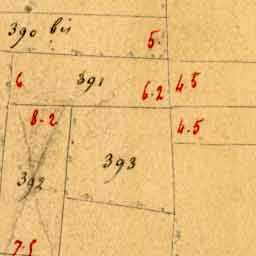 390 bis
5.
6 391 6.2 4.5
8.2 4.5
392 393
7.5